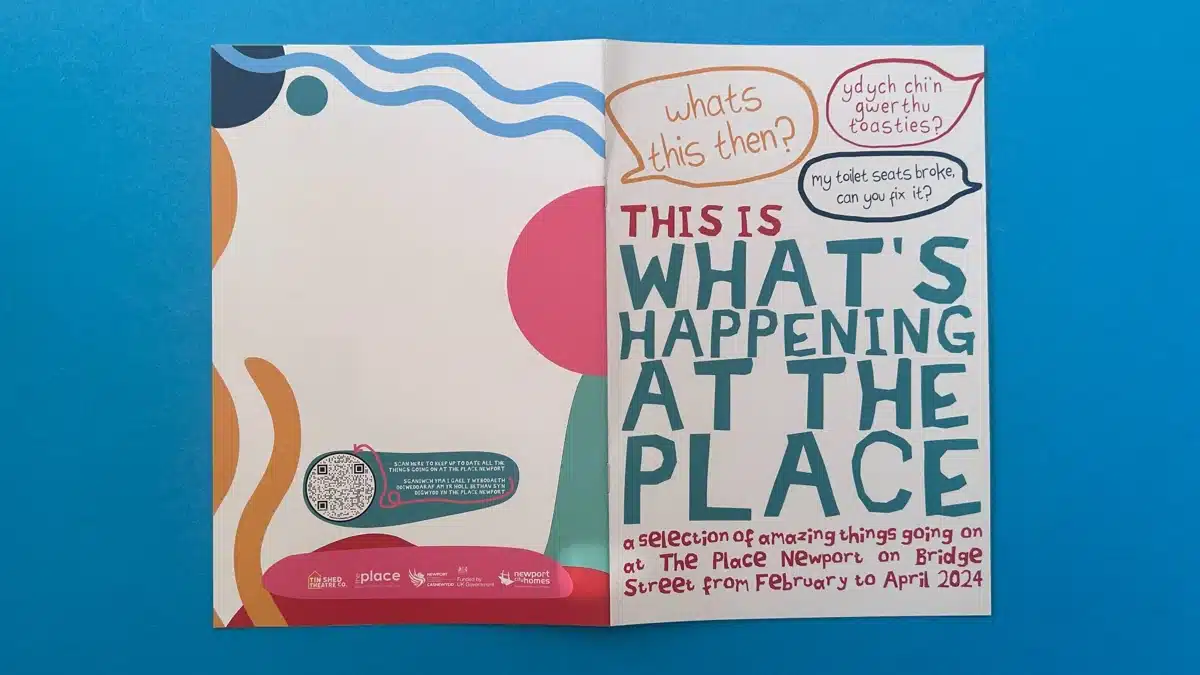 whats
this then?
ydych chi'n
gwerthu
toasties?
my toilet seats broke,
can you fix it?
THIS IS
WHAT'S
HAPPENING
AT THE
PLACE
a selection of amazing things going on
at The Place Newport on Bridge
Street from February to April 2024
SCAN HERE TO KEEP UP TO DATE ALL THE
THINGS GOING ON AT THE PLACE NEWPORT
SGANIWCH YMA I GAEL Y WYBODAETH
DDIWEDDARAF AM YR HOLL BETHAU SY'N
DIGWYDD YN THE PLACE NEWPORT
TIN SHED
THEATRE CO.
the place
NEWPORT
CASNEWYDD
Funded by
UK Government
newport
city homes